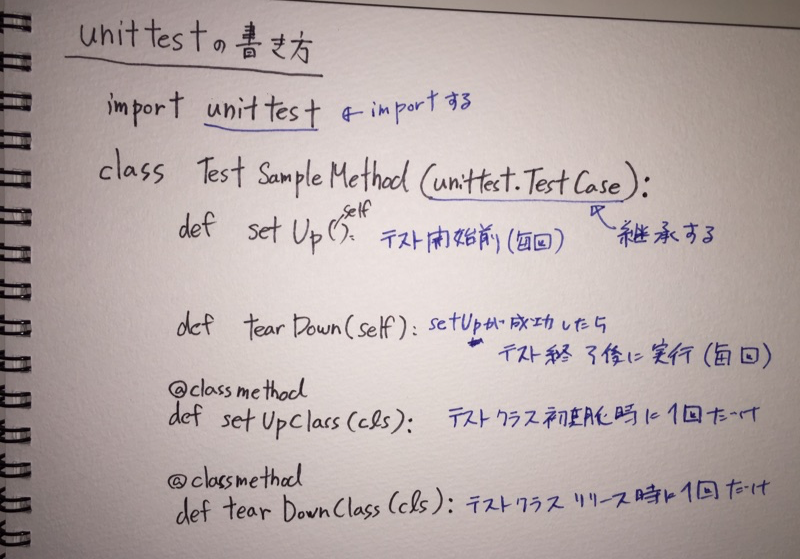 unittestの書き方
import unittest ← importする
class TestSampleMethod(unittest.TestCase):
継承する
def setUp(self): テスト開始前(毎回)
def tearDown(self): setUpが成功したら
テスト終了後に実行(毎回)
@classmethod
def setUpClass(cls): テストクラス初期化時に1回だけ
@classmethod
def tearDownClass(cls): テストクラスリリース時に1回だけ